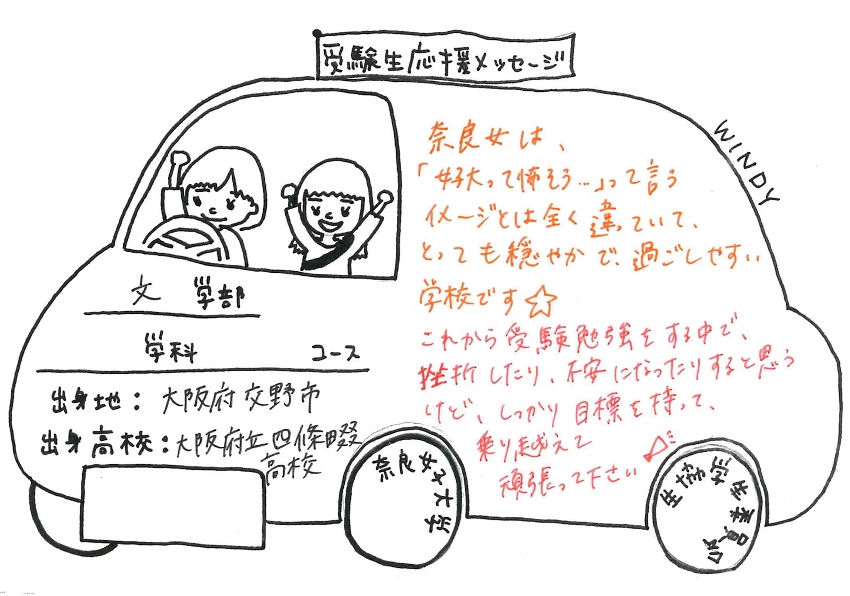 受験生応援メッセージ
WINDY
奈良女は、
「女子大って怖そう…」って言う
イメージとは全く違っていて、
とっても穏やかで、過ごしやすい
学校です☆
これから受験勉強をする中で、
挫折したり、不安になったりすると思う
けど、しっかり目標を持って、
乗り越えて
頑張って下さい
文 学部
学科 コース
出身地：大阪府交野市
出身高校：大阪府立四條畷
高校
奈良女子大学
生協学生委員会